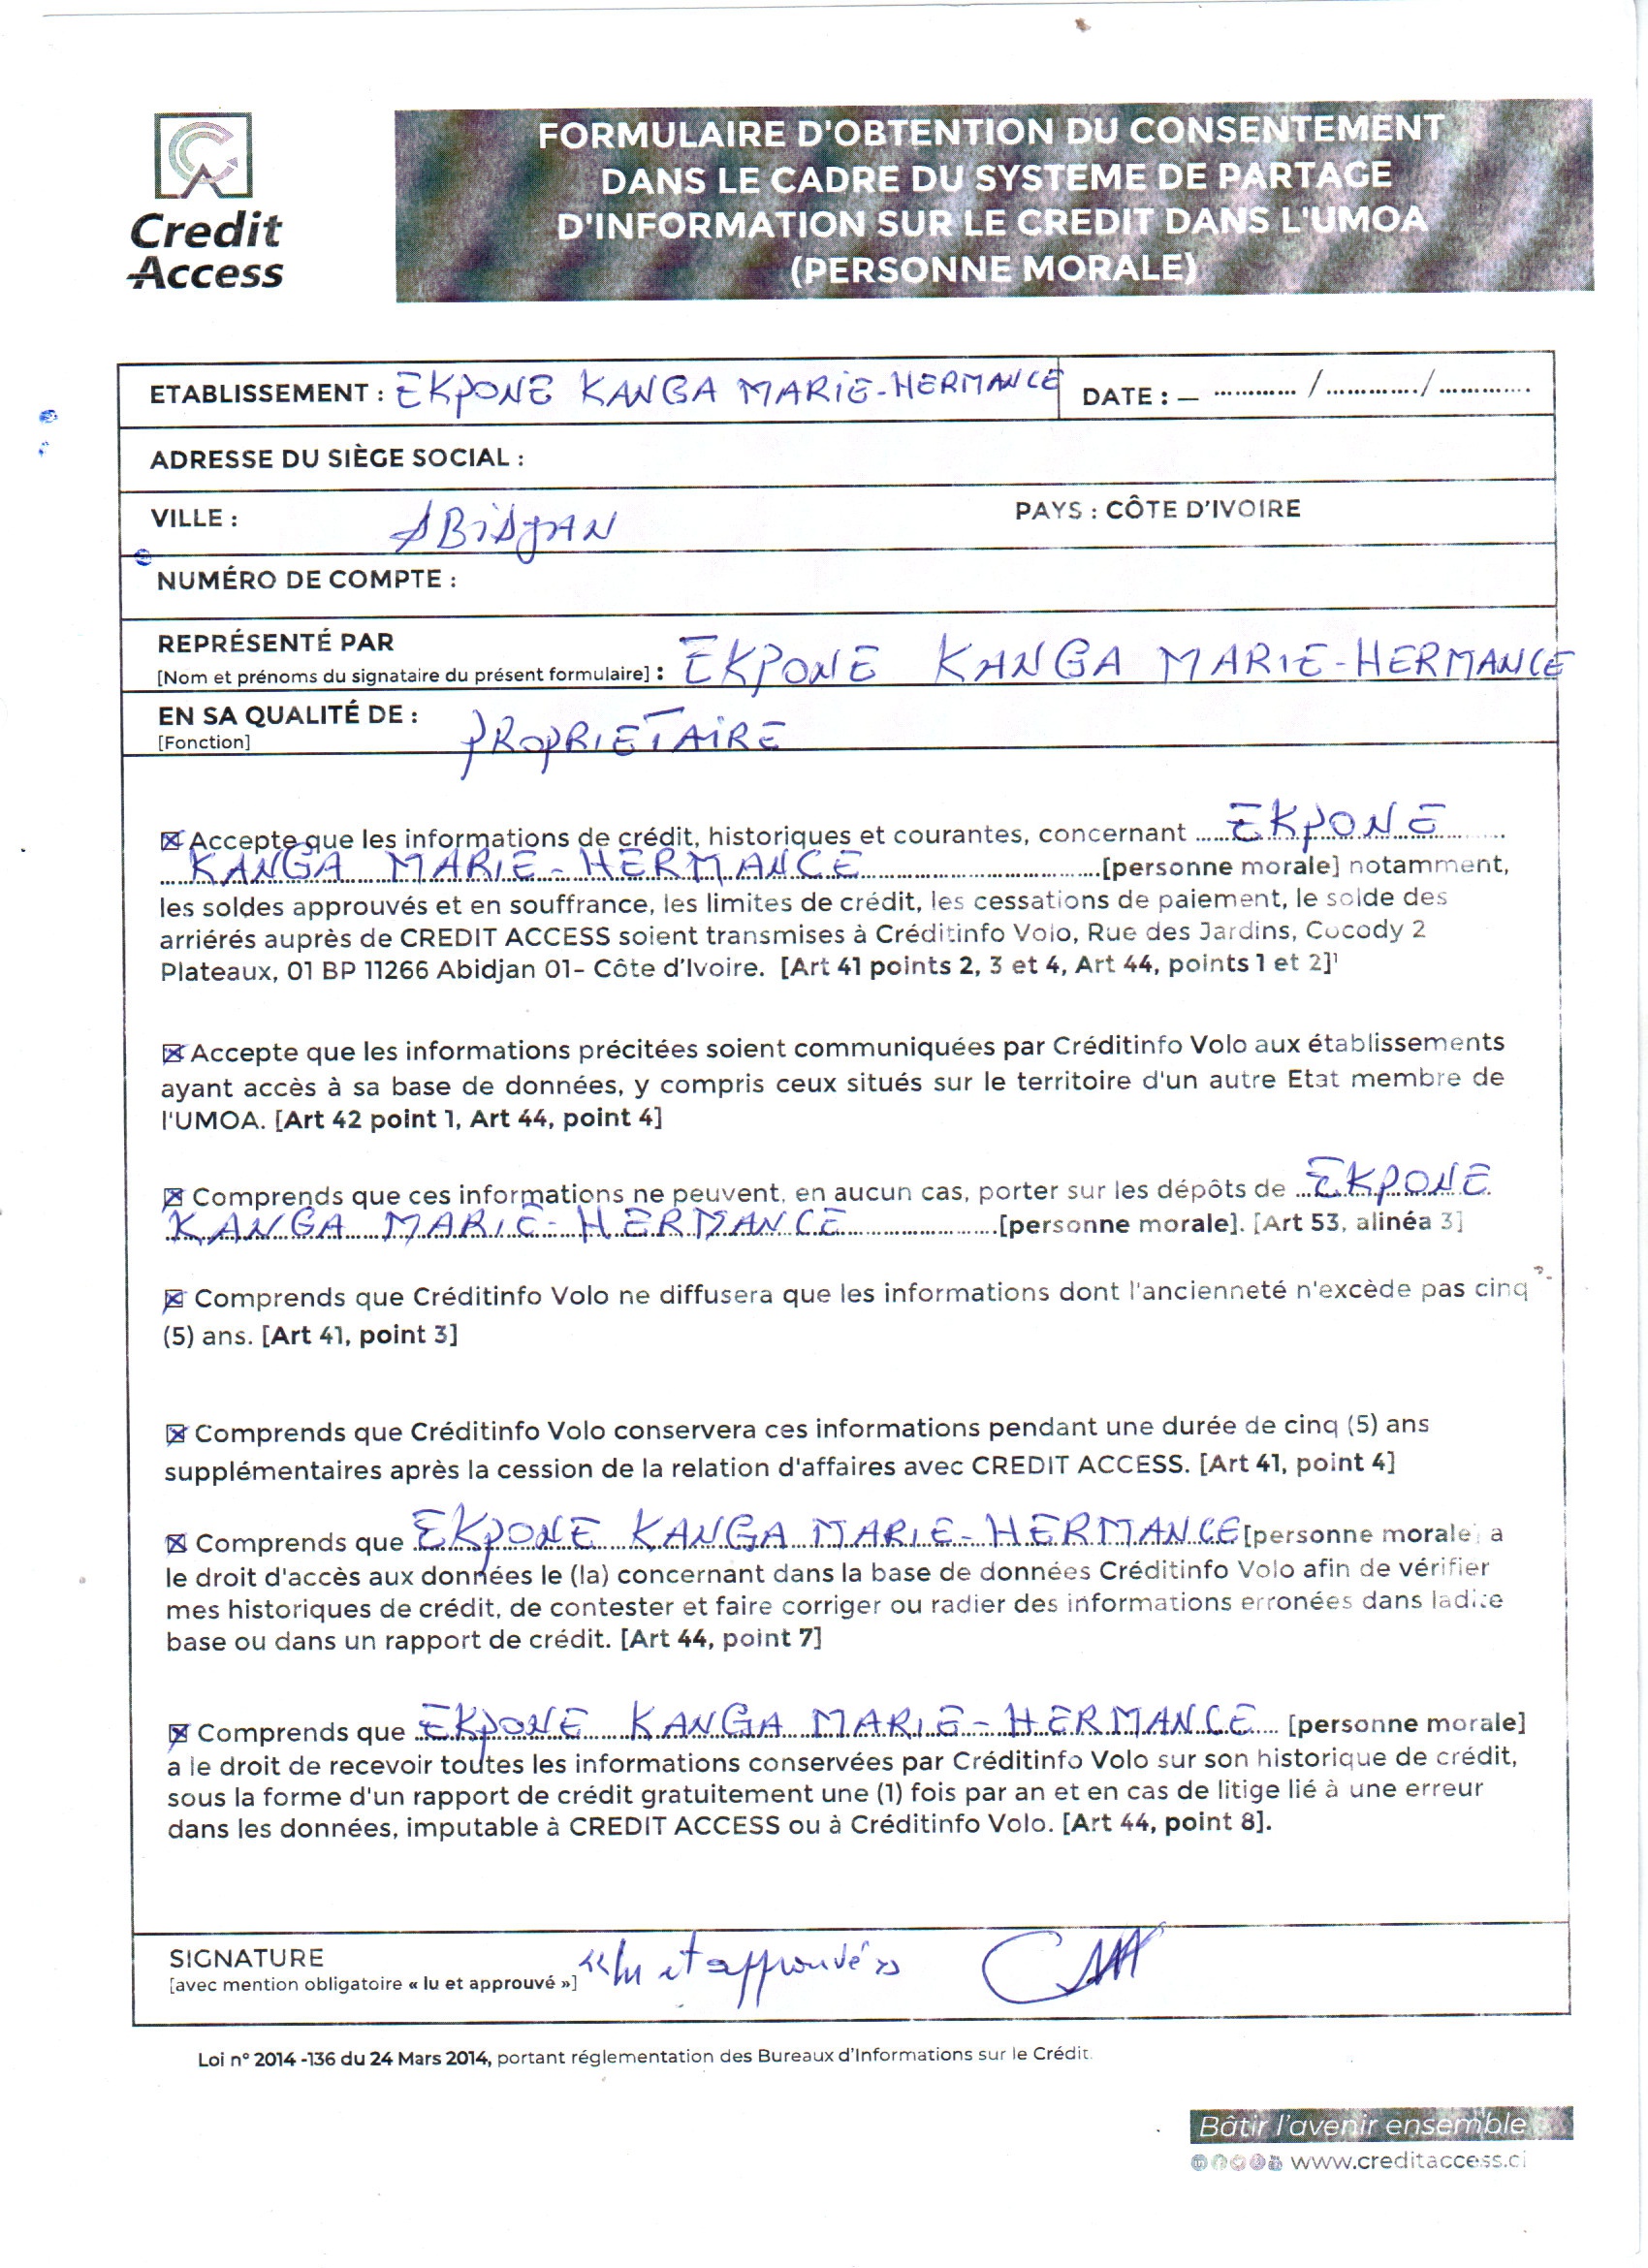 Credit
Access
FORMULAIRE D'OBTENTION DU CONSENTEMENT
DANS LE CADRE DU SYSTEME DE PARTAGE
D'INFORMATION SUR LE CREDIT DANS L'UMOA
(PERSONNE MORALE)
ETABLISSEMENT : EKPONE KANGA MARIE-HERMANCE DATE : – ............ /............./.............
ADRESSE DU SIÈGE SOCIAL :
VILLE : ABIDJAN PAYS : CÔTE D'IVOIRE
NUMÉRO DE COMPTE :
REPRÉSENTÉ PAR
[Nom et prénoms du signataire du présent formulaire] : EKPONE KANGA MARIE-HERMANCE
EN SA QUALITÉ DE : PROPRIETAIRE
[Fonction]
☒ Accepte que les informations de crédit, historiques et courantes, concernant EKPONE
KANGA MARIE-HERMANCE [personne morale] notamment,
les soldes approuvés et en souffrance, les limites de crédit, les cessations de paiement, le solde des
arriérés auprès de CREDIT ACCESS soient transmises à Créditinfo Volo, Rue des Jardins, Cocody 2
Plateaux, 01 BP 11266 Abidjan 01- Côte d'Ivoire. [Art 41 points 2, 3 et 4, Art 44, points 1 et 2]¹
☒ Accepte que les informations précitées soient communiquées par Créditinfo Volo aux établissements
ayant accès à sa base de données, y compris ceux situés sur le territoire d'un autre Etat membre de
l'UMOA. [Art 42 point 1, Art 44, point 4]
☒ Comprends que ces informations ne peuvent, en aucun cas, porter sur les dépôts de EKPONE
KANGA MARIE-HERMANCE [personne morale]. [Art 53, alinéa 3]
☒ Comprends que Créditinfo Volo ne diffusera que les informations dont l'ancienneté n'excède pas cinq
(5) ans. [Art 41, point 3]
☒ Comprends que Créditinfo Volo conservera ces informations pendant une durée de cinq (5) ans
supplémentaires après la cession de la relation d'affaires avec CREDIT ACCESS. [Art 41, point 4]
☒ Comprends que EKPONE KANGA MARIE-HERMANCE [personne morale] a
le droit d'accès aux données le (la) concernant dans la base de données Créditinfo Volo afin de vérifier
mes historiques de crédit, de contester et faire corriger ou radier des informations erronées dans ladite
base ou dans un rapport de crédit. [Art 44, point 7]
☒ Comprends que EKPONE KANGA MARIE-HERMANCE [personne morale]
a le droit de recevoir toutes les informations conservées par Créditinfo Volo sur son historique de crédit,
sous la forme d'un rapport de crédit gratuitement une (1) fois par an et en cas de litige lié à une erreur
dans les données, imputable à CREDIT ACCESS ou à Créditinfo Volo. [Art 44, point 8].
SIGNATURE
[avec mention obligatoire « lu et approuvé »] «lu et approuvé»
Loi n° 2014 -136 du 24 Mars 2014, portant réglementation des Bureaux d'Informations sur le Crédit.
Bâtir l'avenir ensemble
www.creditaccess.ci